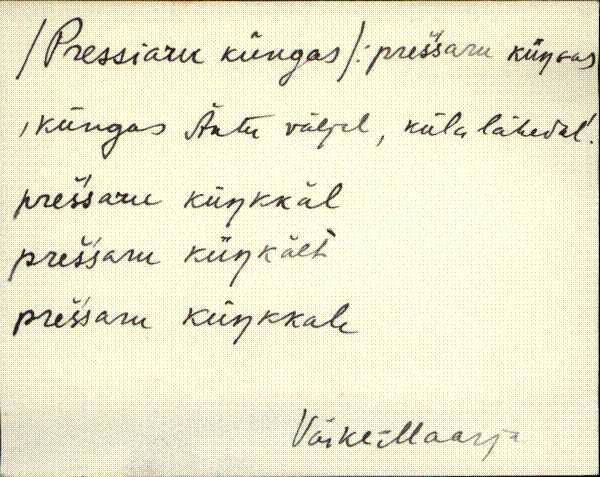 /Pressiaru küngas/: preš́šaru küŋGas
, küngas Äntu väljal, küla lähedal'.
preš́šaru küŋkkäl
preš́šaru küŋkält
preš́šaru küŋkkale
Väike-Maarja